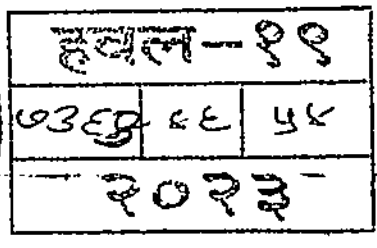 हवल-११
७३६८ ४६ ५४
२०२३